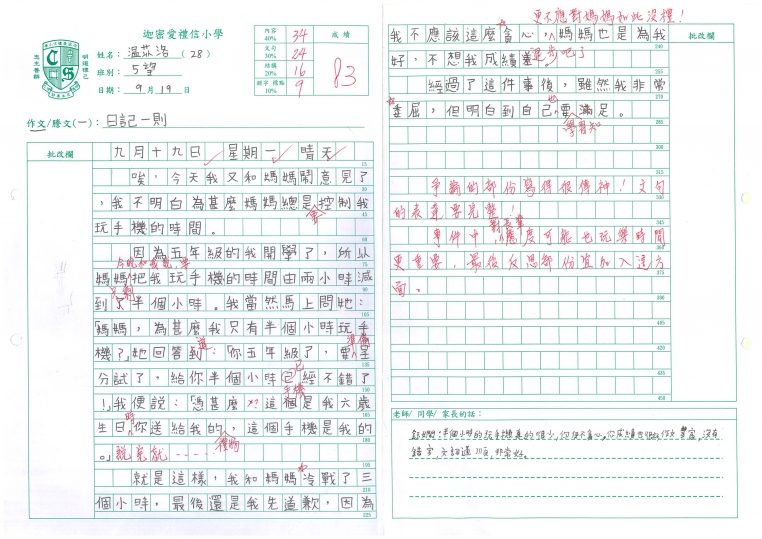 迦密愛禮信小學
姓名：溫苡浩（28）
班別：5望
日期：9月19日
內容 40% 34
文句 30% 24
結構 20% 16
錯字 標點 10% 9
成績
83
作文/謄文(一)：日記一則
批改欄
九月十九日 星期一 晴天
唉，今天我又和媽媽鬧意見了
，我不明白為甚麼媽媽總是控制我
會
玩手機的時間。
因為五年級的我開學了，所以
媽媽把我玩手機的時間由兩小時減
到了半個小時。我當然馬上問她：
「媽媽，為甚麼我只有半個小時玩手
機？」她回答到：「你五年級了，要呈
道
準備
分試了，給你半個小時已經不錯了
已
手機
！」我便說：「憑甚麼？這個是我六歲
生日你送給我的，這個手機是我的
時
禮物
。」說完就……
就是這樣，我和媽媽冷戰了三
個小時，最後還是我先道歉，因為
更不應對媽媽如此沒禮！
我不應該這麼貪心，媽媽也是為我
好，不想我成績差
退步吧了
經過了這件事後，雖然我非常
委屈，但明白到自己要滿足。
也
學習知
爭論的部份寫得很傳神！文句
的表達要完整！
事件中，態度可能也玩樂時間
更重要，最後反思部份宜加入這方
面。
批改欄
老師/ 同學/ 家長的話：